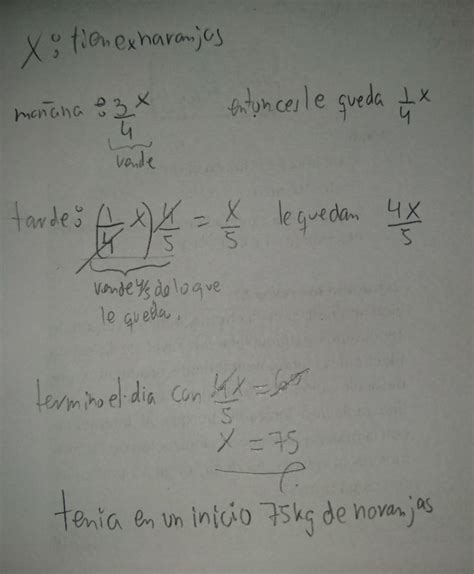 X: tiene x naranjas
mañana: 3/4 x entonces le queda 1/4 x
vende
tarde: (1/4 x) 4/5 = x/5 le quedan 4x/5
vende 4/5 de lo que
le queda.
termino el dia con 4x/5 = 60
x = 75
tenia en un inicio 75kg de naranjas